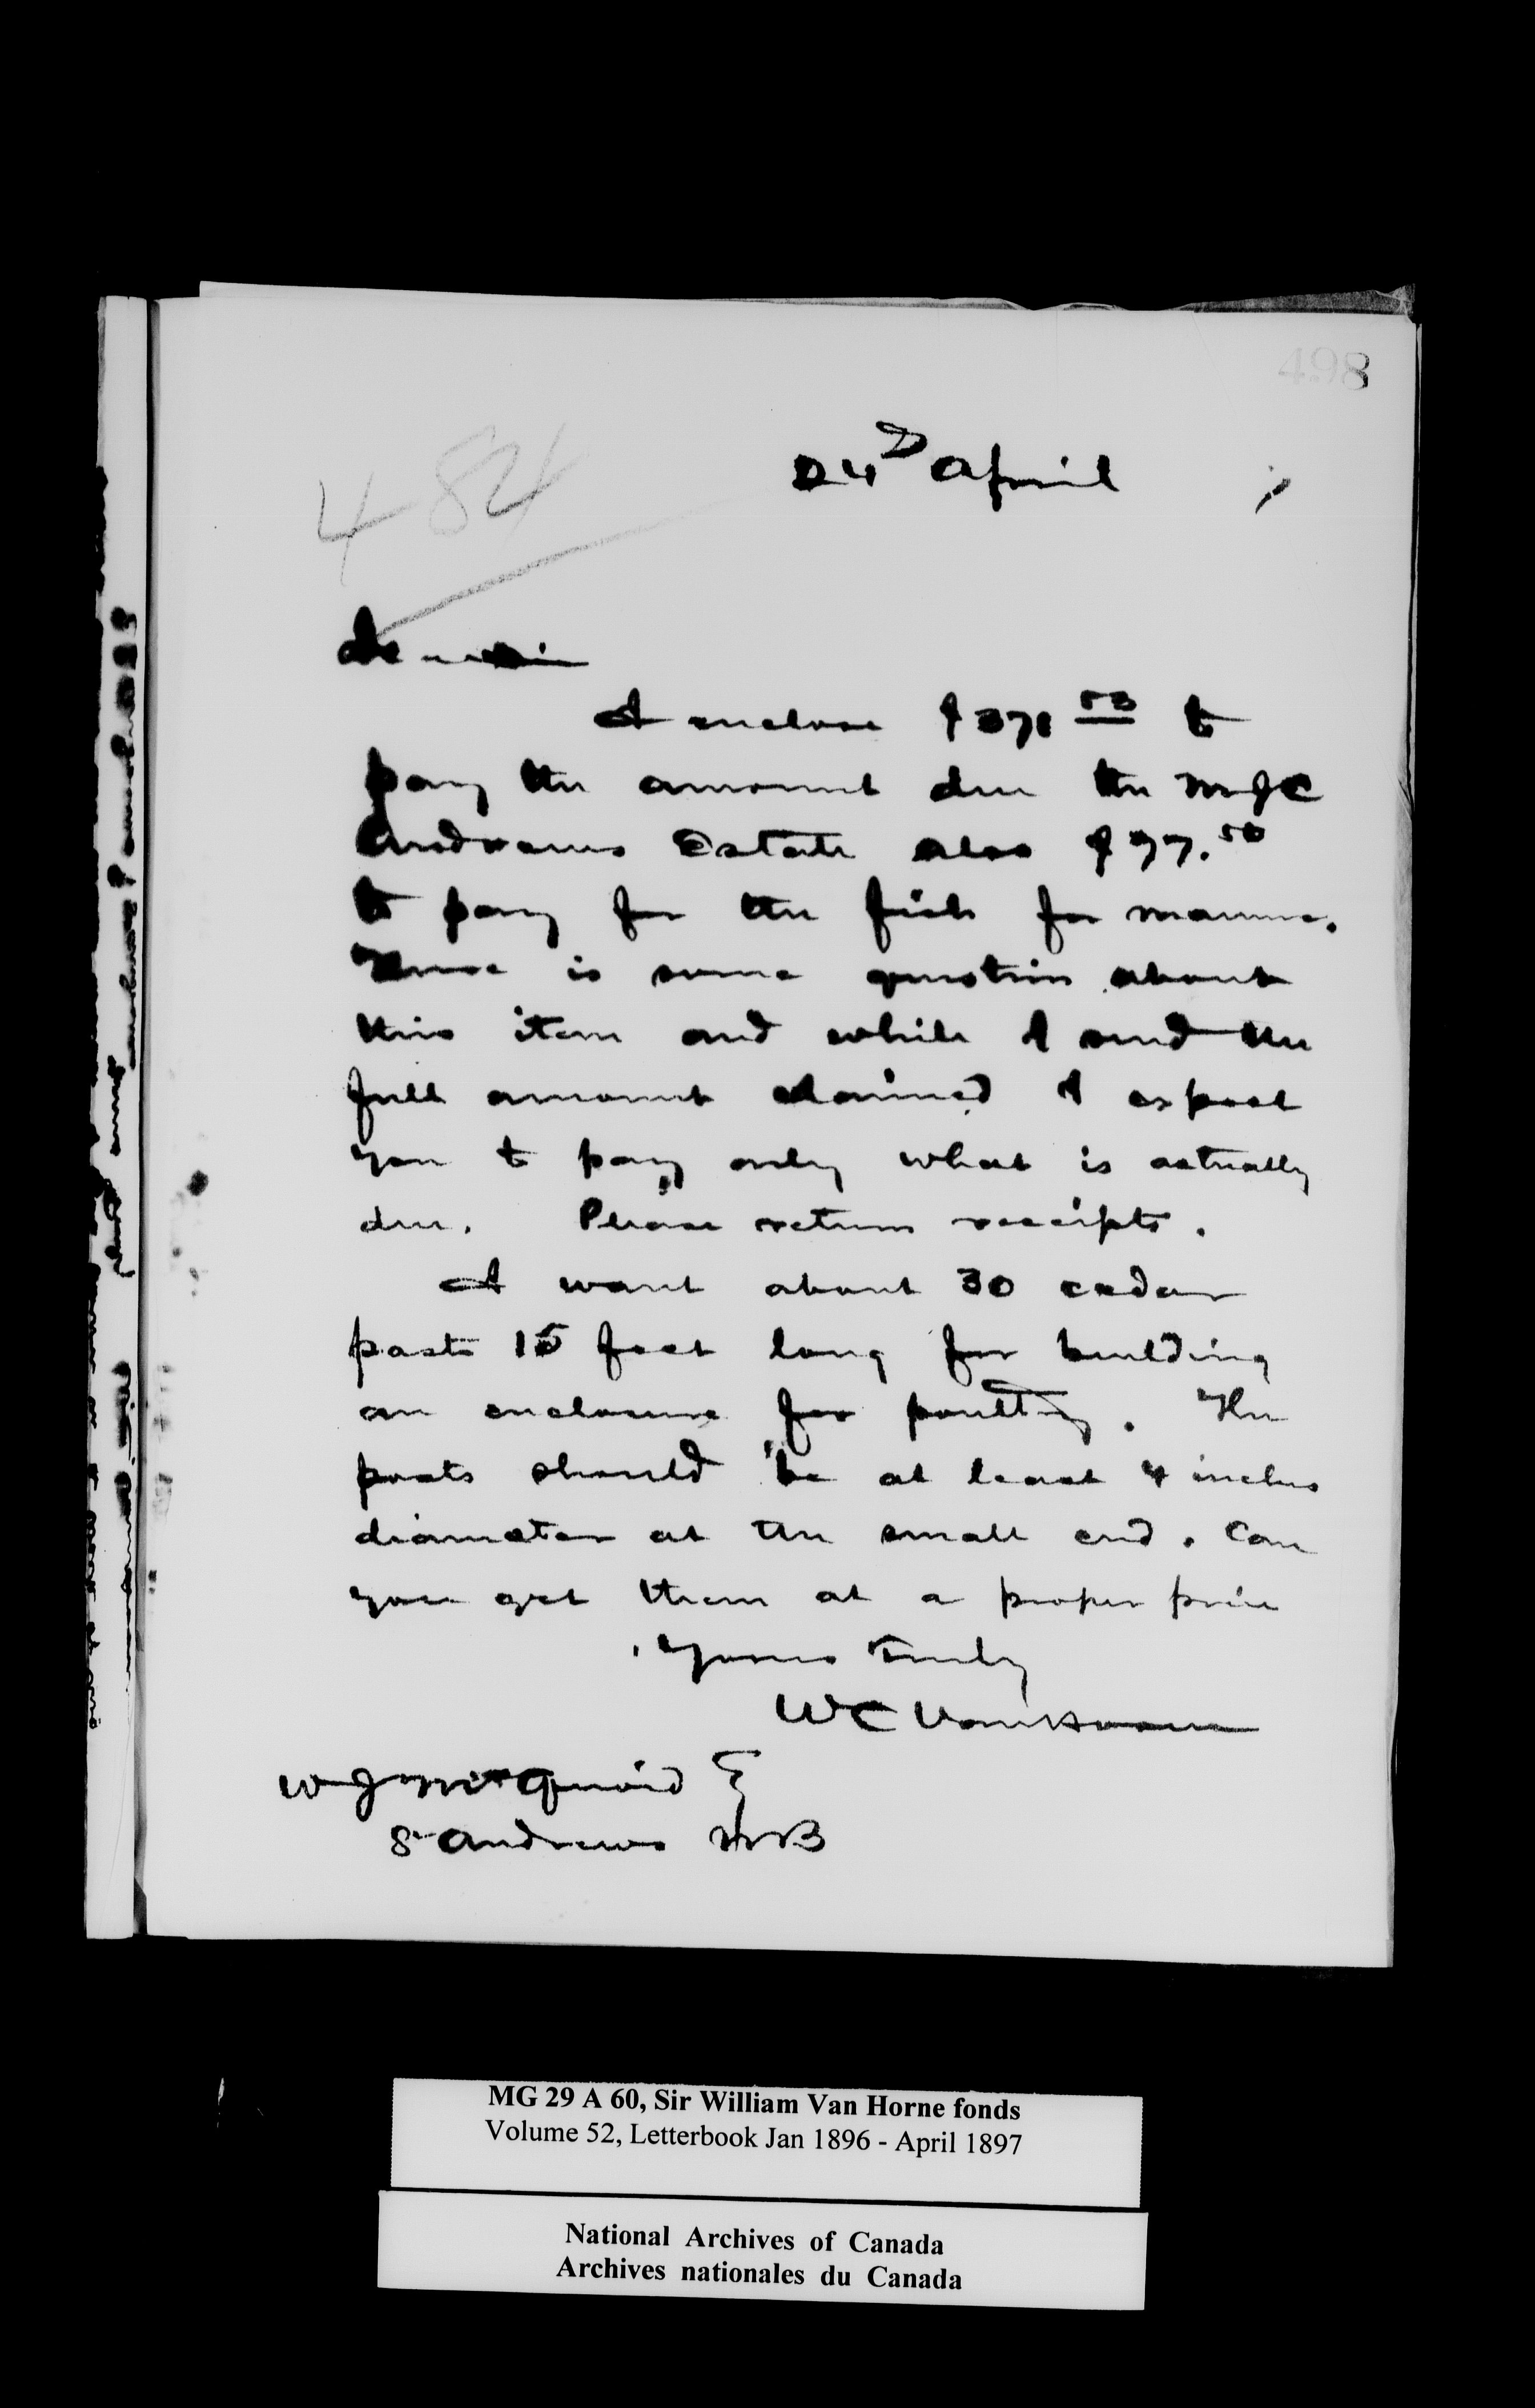 498
484
24th April
Dear Sir
I enclose $371 53 to
pay the amount due the M J C
Andrews Estate also $97.50
to pay for the fish for manure.
There is some question about
this item and while I send the
full amount claimed I expect
you to pay only what is actually
due. Please return receipts.
I want about 30 cedar
posts 15 feet long for building
an enclosure for poultry. The
posts should be at least 4 inches
diameter at the small end. Can
you get them at a proper price
Yours truly
W C Van Horne
W J McQuoid
St Andrews NB
MG 29 A 60, Sir William Van Horne fonds
Volume 52, Letterbook Jan 1896 - April 1897
National Archives of Canada
Archives nationales du Canada